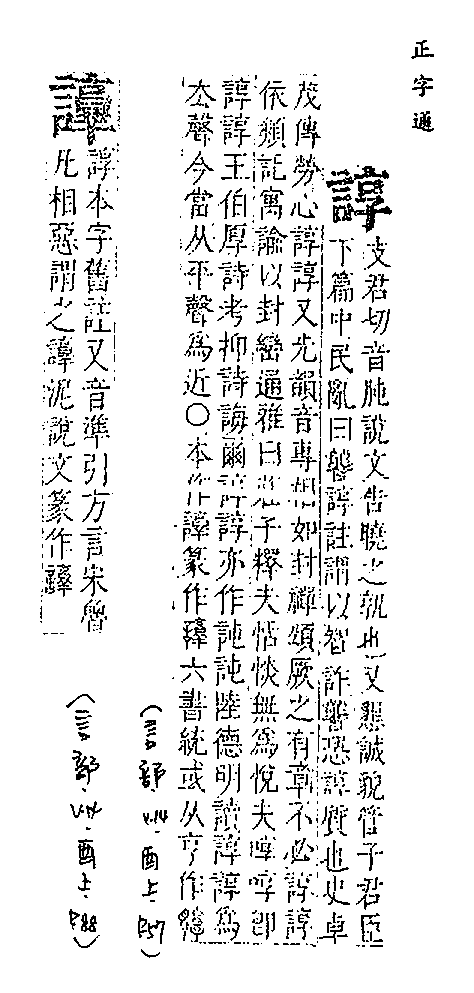 正字通
諄
支君切音肫說文告曉之孰也又懇誠貌管子君臣
下篇中民亂曰讋諄註謂以智詐讋恐諄質也史卓
茂傳勞心諄諄又先韻音專相如封禪頌厥之有章不必諄諄
依類託寓諭以封巒通雅曰莊子釋夫恬惔無為悅夫啍啍即
諄諄王伯厚詩考抑詩誨爾諄諄亦作訰訰陸德明讀諄諄為
去聲今當从平聲為近〇本作𧭄篆作六書統或从亨作
(言部.V.14.酉上.P.57)
𧭄
諄本字舊註又音準引方言宋魯
凡相惡謂之𧭄泥說文篆作
(言部.V.14.酉上.P.88)